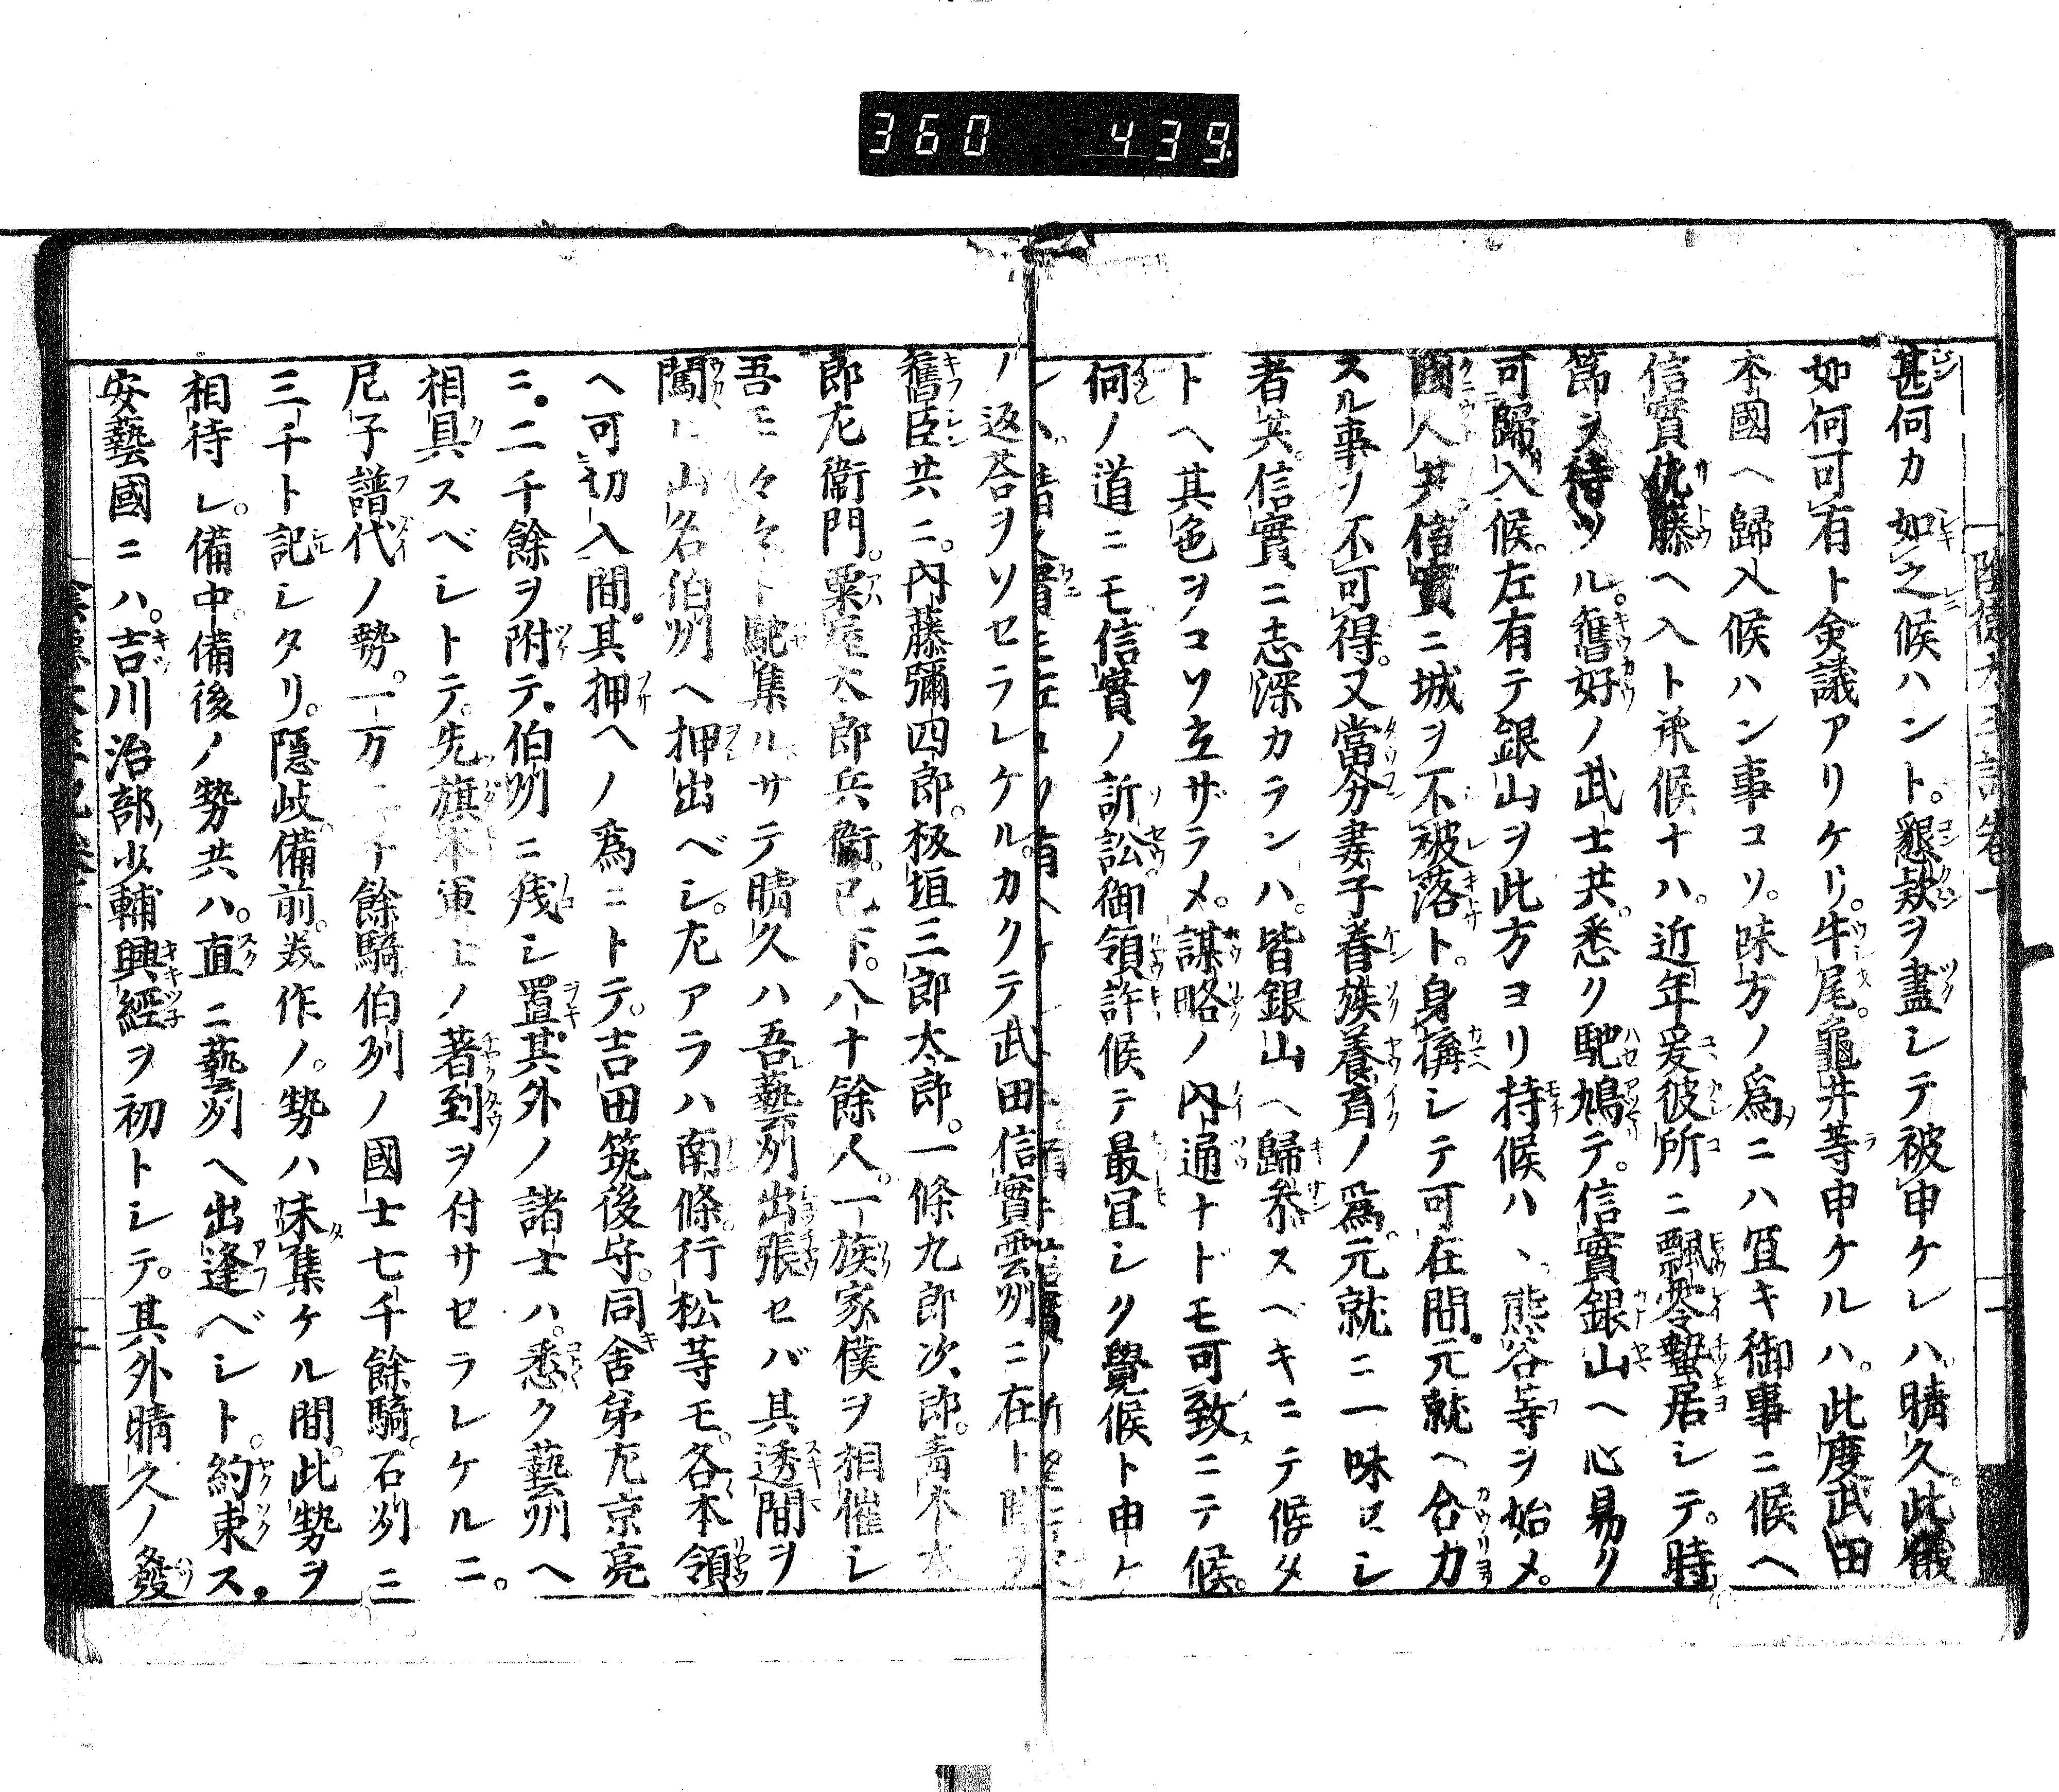 360 439
甚何カ如之候ハント。懇欵ヲ盡シテ被申ケレハ。晴久。此儀
如何可有ト僉議アリケリ。牛尾。龜井等申ケルハ。此度武田
本國ヘ歸入候ハン事コソ。味方ノ爲ニハ宜キ御事ニ候ヘ
信實佐藤ヘ入ト承候ナハ。近年爰彼所ニ飄零蟄居シテ。時
節ヲ待ツル。舊好ノ武士共。悉ク馳鳩テ。信實銀山ヘ心易ク
可歸入候。左有テ銀山ヲ此方ヨリ持候ハヽ熊谷等ヲ始メ。
國人共信實ニ城ヲ不被落ト。身搆シテ可在間。元就ヘ合力
スル事ヲ不可得。又當分妻子眷族養育ノ爲。元就ニ一味セシ
者共。信實ニ志深カランハ。皆銀山ヘ歸參スベキニテ候タ
トヘ其色ヲコソ立ザラメ。謀略ノ内通ナドモ可致ニテ候。
何ノ道ニモ信實ノ訴訟。御領許候テ最宜シク覺候ト申ケ
ノ返荅ヲソセラレケル。カクテ武田信實雲州ニ在ト
舊臣共ニ。内藤彌四郎。板垣三郎太郎。一條九郎次郎。青木
郎左衞門。粟屋太郎兵衞。已下。八十餘人。一族家僕ヲ相催シ
吾モ々々ト馳集ル。サテ晴久ハ吾藝州出張セバ其透間ヲ
闖ヒ山名伯州ヘ押出ベシ。左アラハ南條。行松等モ。各本領
ヘ可切入間。其押ヘノ爲ニトテ。吉田筑後守。同舎弟左京亮
ニ。二千餘ヲ附テ。伯州ニ殘シ置。其外ノ諸士ハ。悉ク藝州ヘ
相具スベシトテ。先旗本軍士ノ著到ヲ付サセラレケルニ。
尼子譜代ノ勢。一万二千餘騎伯州ノ國士七千餘騎。石州ニ
三千ト記シタリ。隱岐。備前。美作ノ。勢ハ未集ケル間。此勢ヲ
相待レ。備中。備後ノ勢共ハ。直ニ藝州ヘ出逢ベシト。約束ス。
安藝國ニハ。吉川治部少輔興經ヲ初トシテ。其外晴久ノ發